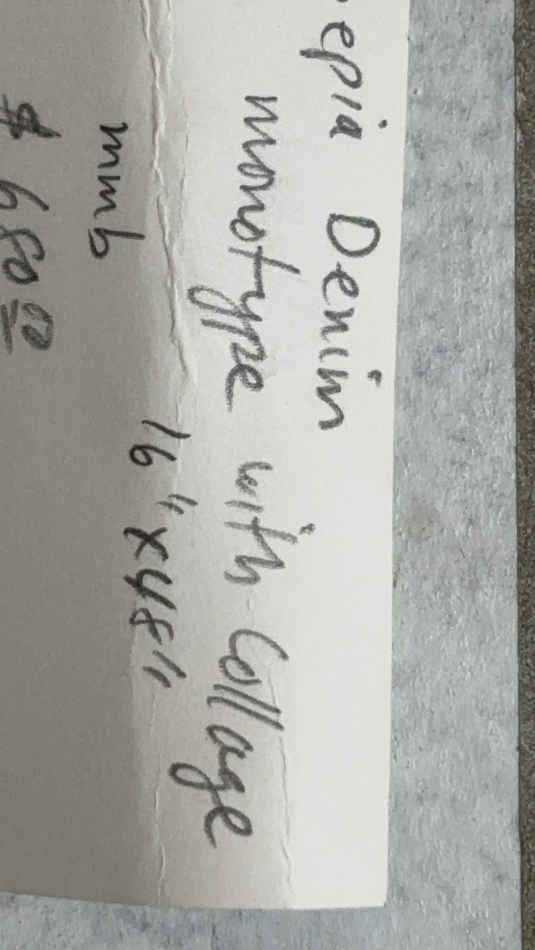 epia Denim
monotype with Collage
16" x 48"
mmb
$ 680 00